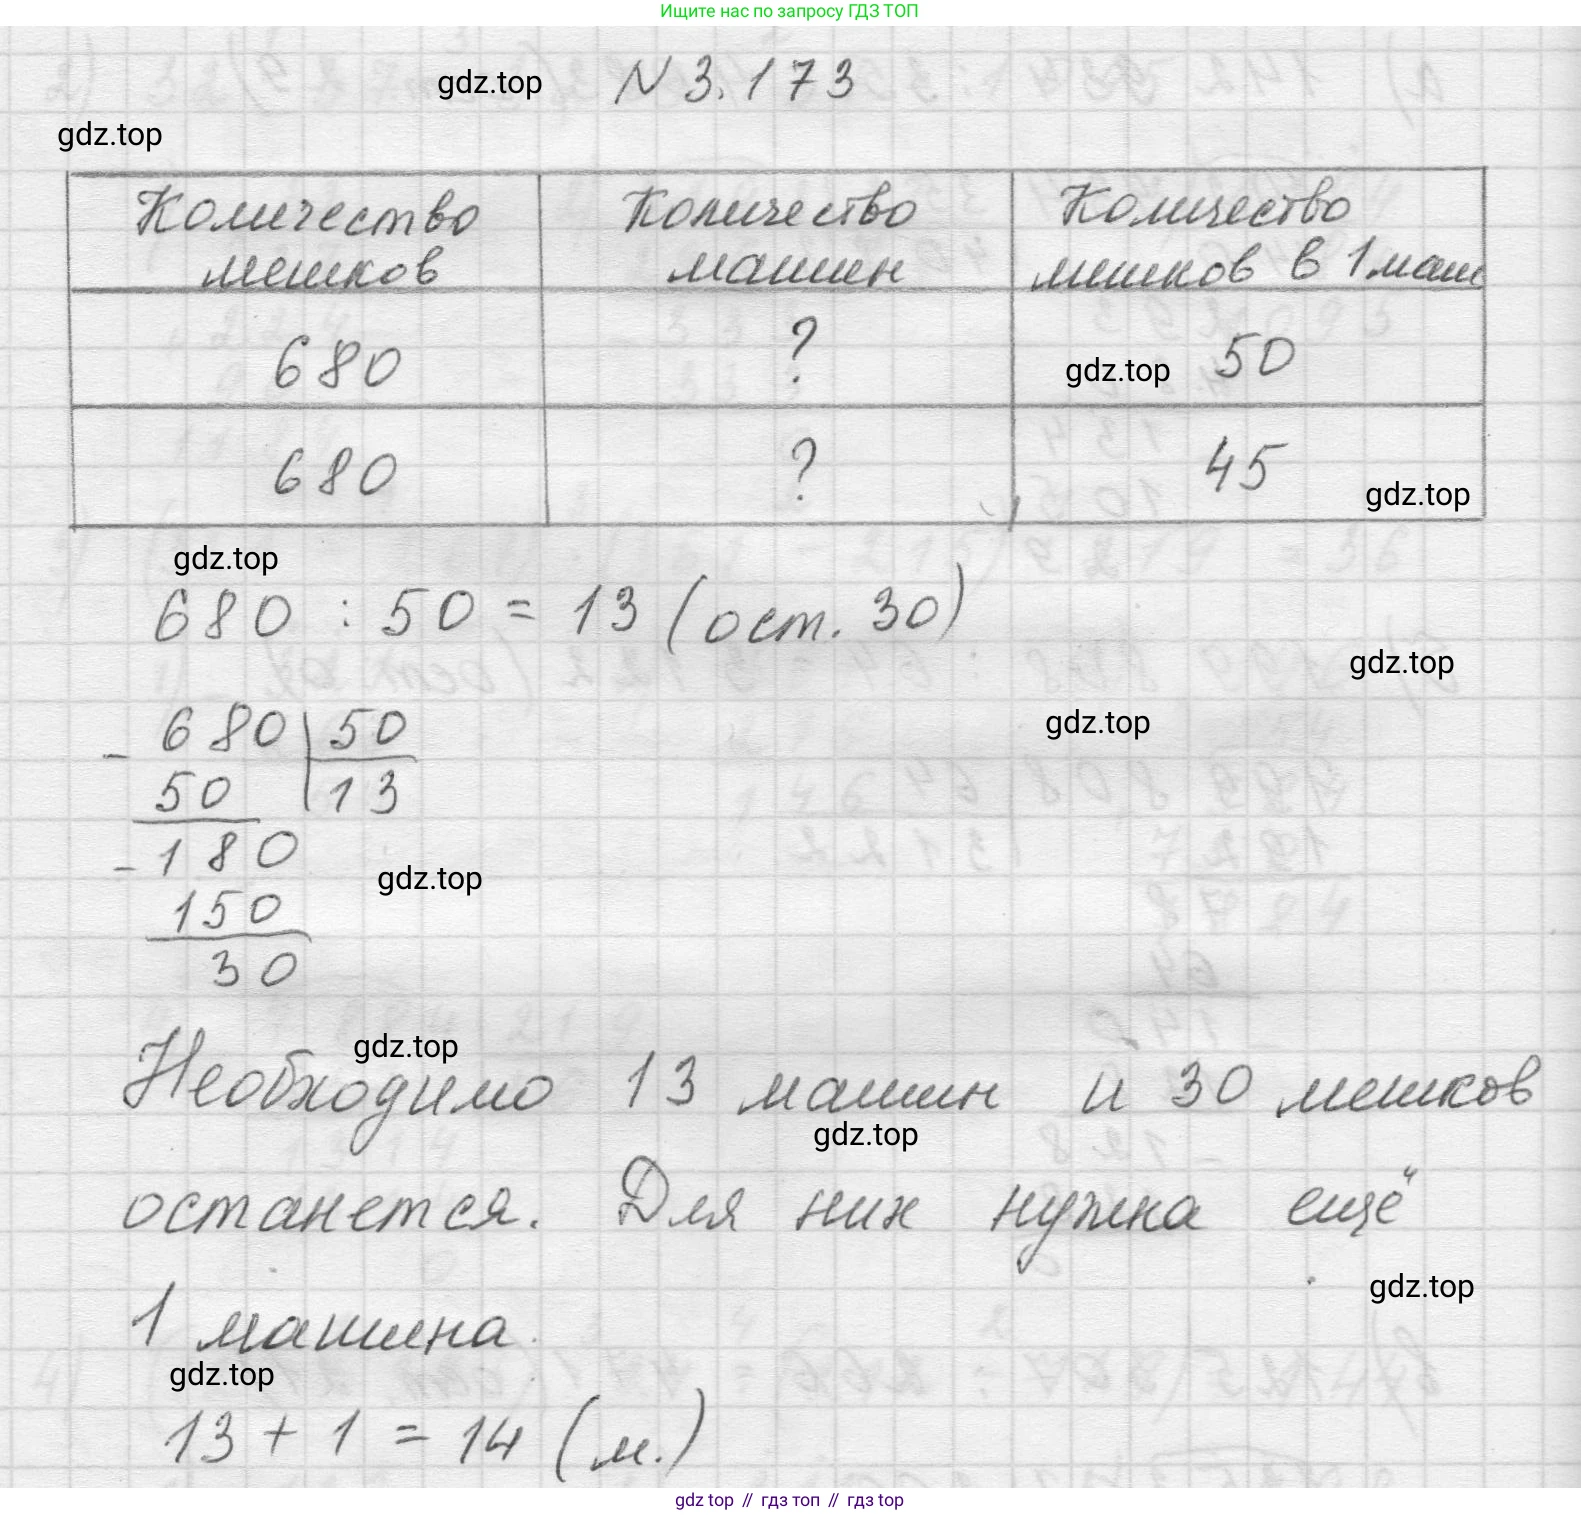 Ищите нас по запросу ГДЗ ТОП
gdz.top № 3.173
gdz.top
Количество мешков | Количество машин | Количество мешков в 1 маш
680 | ? | gdz.top 50
680 | ? | 45 gdz.top
gdz.top
680 : 50 = 13 (ост. 30)
gdz.top
gdz.top
- 680 | 50
50 | 13
- 180
gdz.top
150
30
gdz.top
Необходимо 13 машин и 30 мешков
gdz.top
останется. Для них нужна ещё
gdz.top
1 машина.
gdz.top
13 + 1 = 14 (м.)
gdz top // гдз топ // гдз top